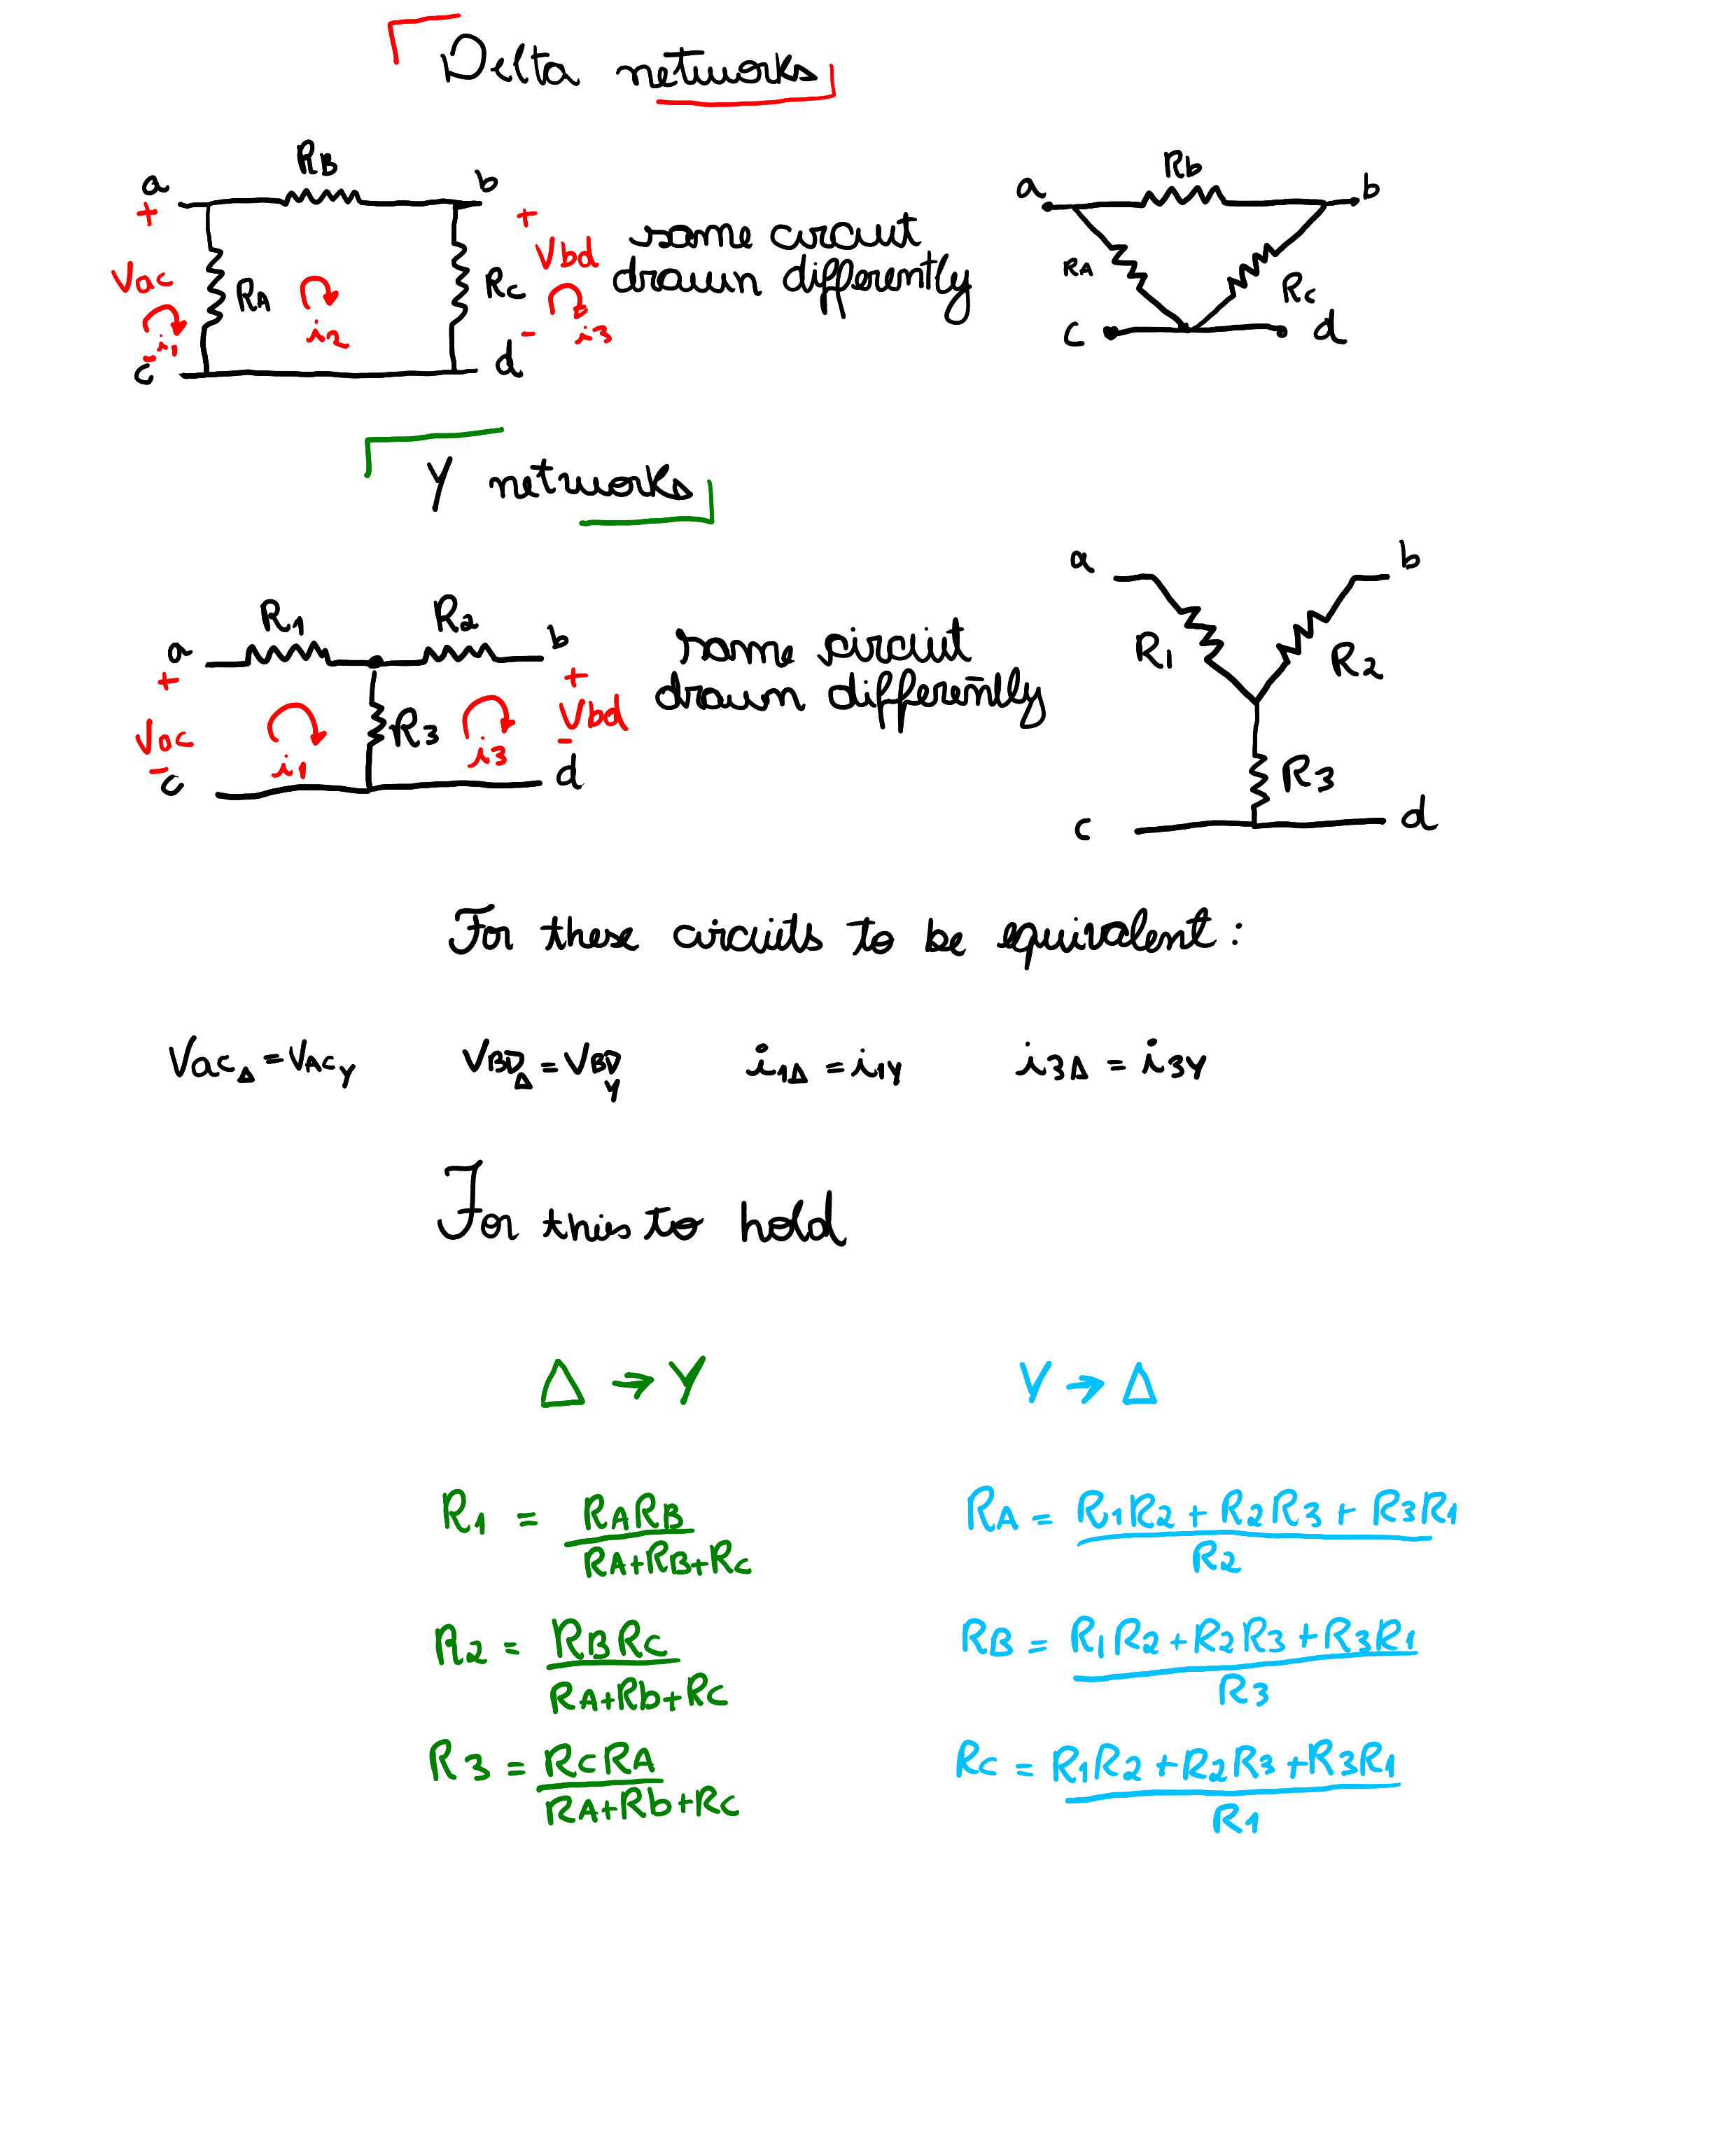 Delta networks
RB
a b
+ +
Vac RA i2 Rc Vbd
i1 i3
- -
c d
same circuit
drawn differently
Rb
a b
RA Rc
c d
Y networks
R1 R2
a b
+ +
Vac R3 Vbd
i1 i3
- -
c d
same circuit
drawn differently
a b
R1 R2
R3
c d
For these circuits to be equivalent:
VacΔ = VACY VBDΔ = VBDY i1Δ = i1Y i3Δ = i3Y
For this to hold
Δ → Y
R1 = RARB
RA+RB+Rc
R2 = RBRC
RA+Rb+RC
R3 = RCRA
RA+Rb+RC
Y → Δ
RA = R1R2 + R2R3 + R3R1
R2
RB = R1R2 + R2R3 + R3R1
R3
RC = R1R2 + R2R3 + R3R1
R1